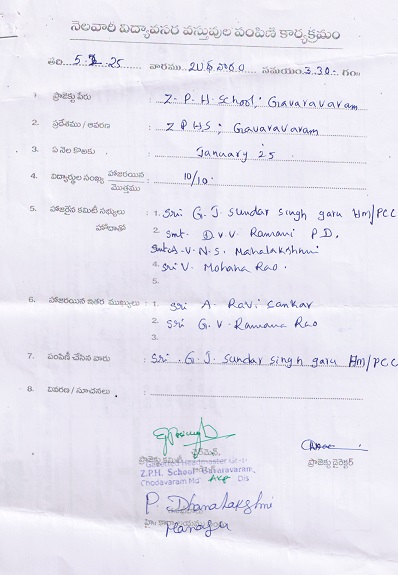 నెలవారీ విద్యావసర వస్తువుల పంపిణీ కార్యక్రమం
తేది 5-2-25 వారము బుధవారం సమయం 3.30 గం॥
1. ప్రాజెక్టు పేరు : Z.P.H. School; Gavaravaram
2. ప్రదేశము / ఆవరణ : ZPHS; Gavaravaram
3. ఏ నెల కొఱకు : January 25
4. విద్యార్థుల సంఖ్య హాజరయిన / మొత్తము : 10/10
5. హాజరైన కమిటీ సభ్యులు : 1. Sri G. J. Sundar Singh garu Hm/PCC
హోదాతో 2. Smt. D.V.V. Ramani P.D.
3. V.N.S. Mahalakshmi
4. Sri V. Mohana Rao.
5.
6. హాజరయిన ఇతర ముఖ్యులు : 1. Sri A. Ravi Sankar
2. Sri G.V. Ramana Rao
3.
7. పంపిణీ చేసిన వారు : Sri. G.J. Sundar Singh garu Hm/PCC
8. వివరణ / సూచనలు :
ప్రాజెక్టు కమిటీ ఛైర్మెన్, ప్రాజెక్టు డైరెక్టర్
Gazetted Headmaster Gr-I
Z.P.H. School Gavaravaram,
Chodavaram Md AKP Dis
P. Dhanalakshmi
Manager